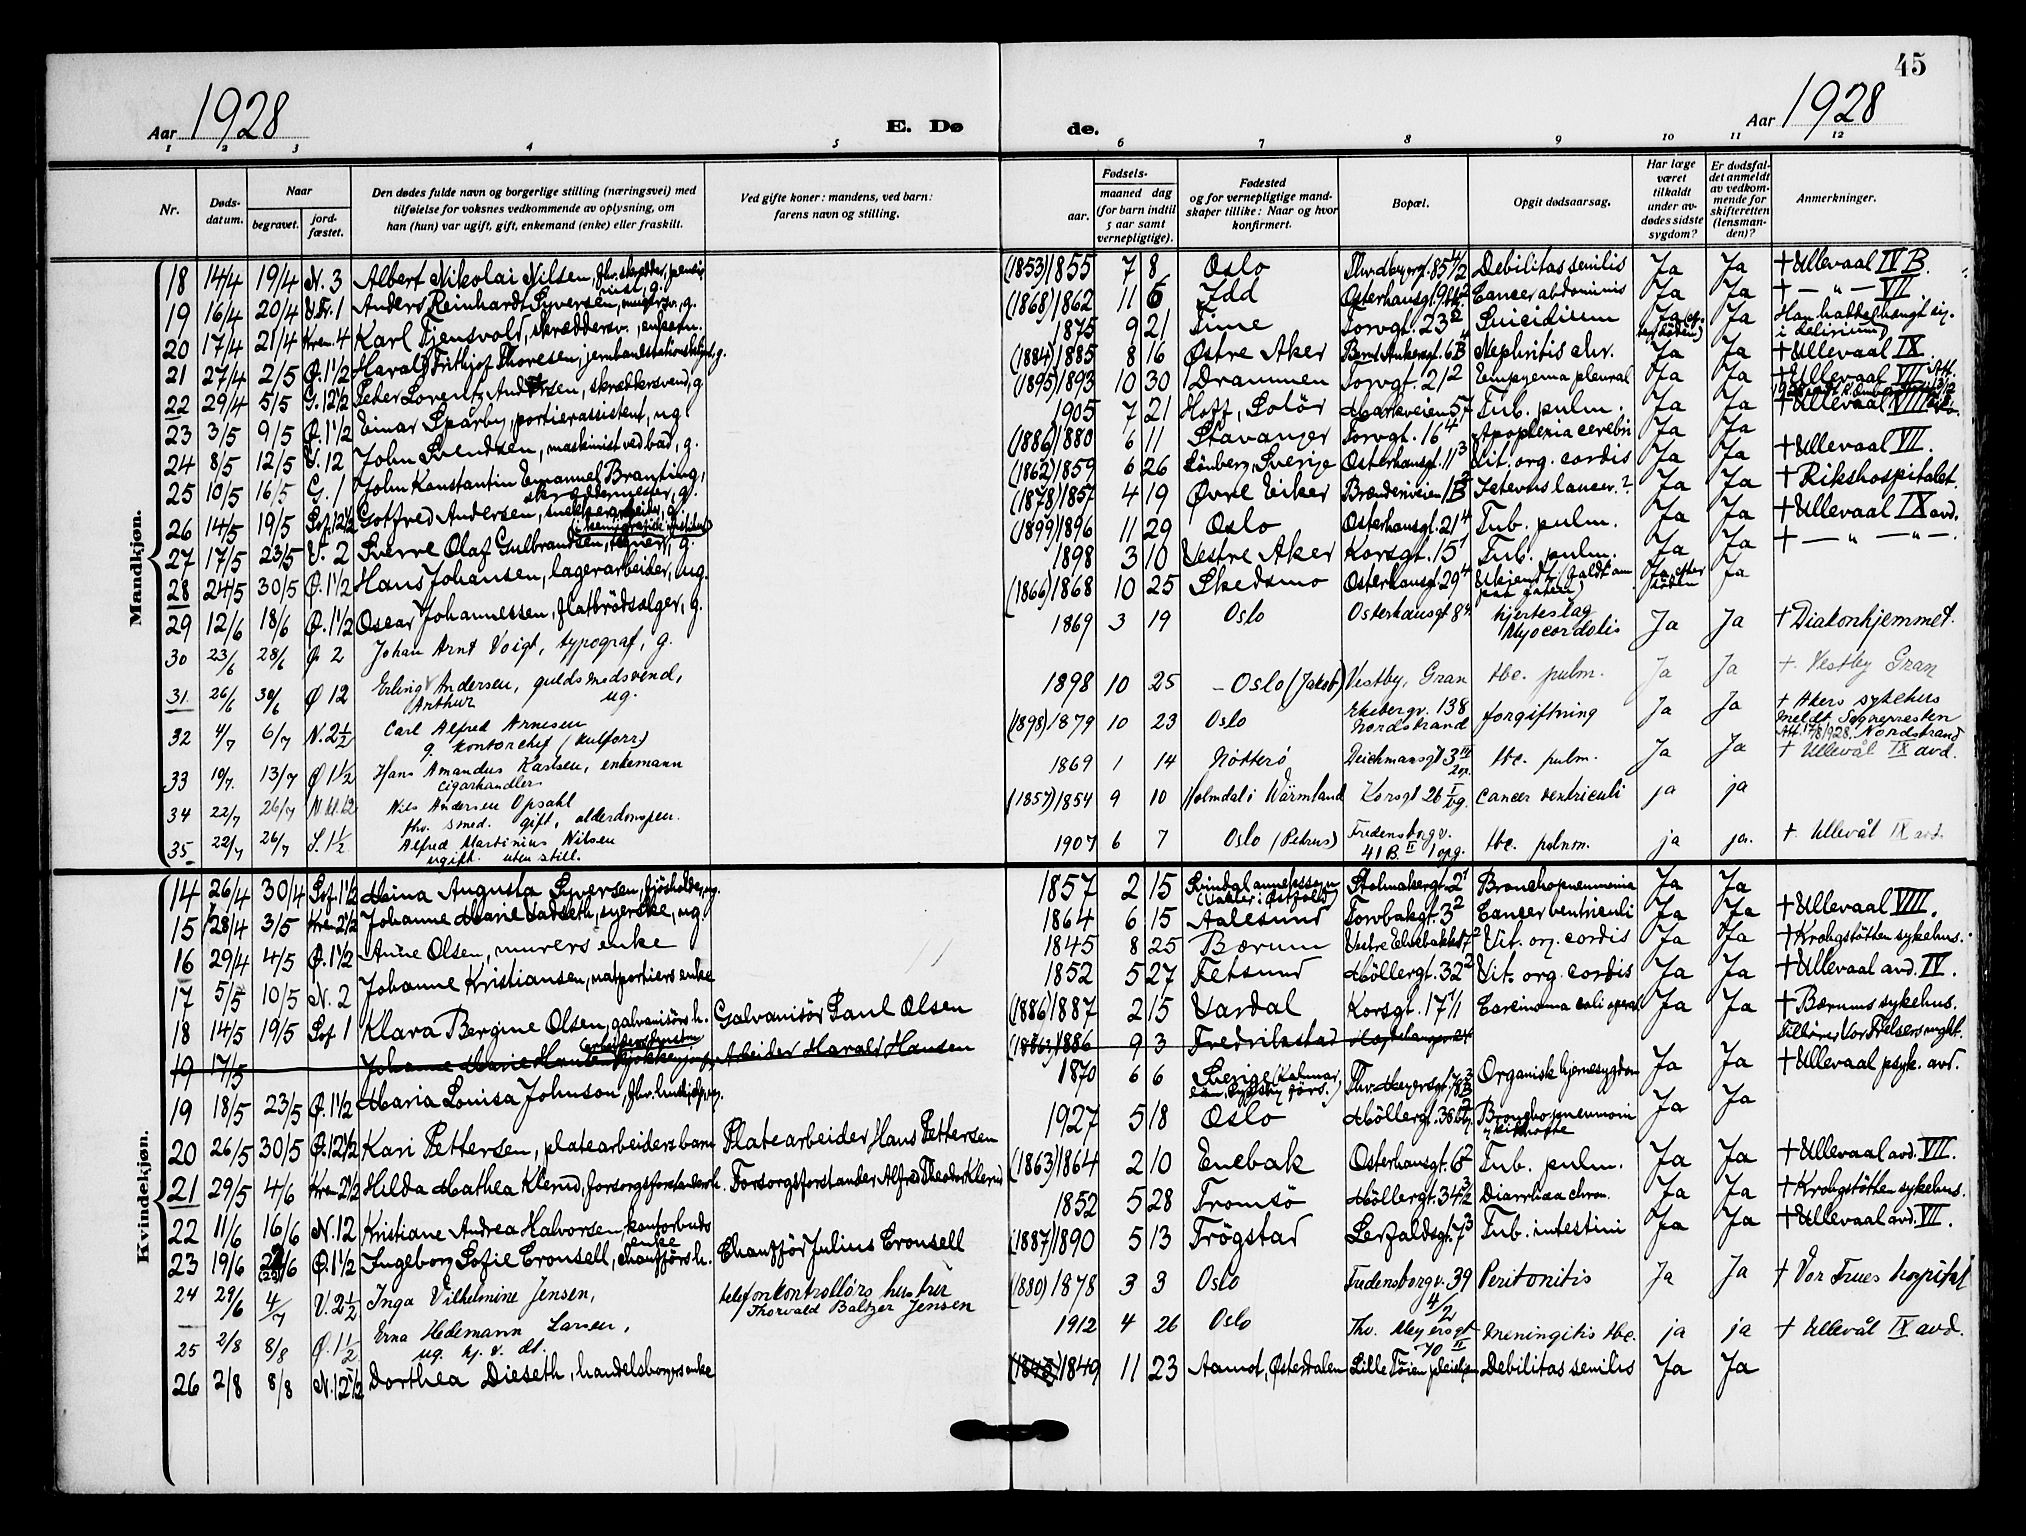 45
Aar 1928
E. Dø
de.
Aar 1928
1 2 3 4 5 6 7 8 9 10 11 12
Nr.
Døds-
datum.
Naar
begravet.
jord-
fæstet.
Den dødes fulde navn og borgerlige stilling (næringsvei) med
tilføielse for voksnes vedkommende av oplysning, om
han (hun) var ugift, gift, enkemand (enke) eller fraskilt.
Ved gifte koner: mandens, ved barn:
farens navn og stilling.
Fødsels-
aar.
maaned dag
(for barn indtil
5 aar samt
vernepligtige).
Fødested
og for vernepligtige mand-
skaper tillike: Naar og hvor
konfirmert.
Bopæl.
Opgit dødsaarsag.
Har læge
været
tilkaldt
under av-
dødes sidste
sygdom?
Er dødsfal-
det anmeldt
av vedkom-
mende for
skifteretten
(lensman-
den)?
Anmerkninger.
Mandkjøn.
18 14/4 19/4 N. 3 Albert Nikolai Nilsen, fhv. skrædder, g. (1853) 1855 7 8 Oslo Debilitas senilis Ja Ja + Ullevaal IV B.
19 16/4 20/4 1 Anders Reinhardt Syversen, g. (1868) 1862 11 6 Idd Cancer abdominis Ja Ja + — " — VII
20 17/4 21/4 Krem. 4 Karl Tjensvold, skræddersv. enkem. 1875 9 21 Time Torvgt. 23 Suicidium Ja Ja Han hadde hængt sig i delirium
21 27/4 2/5 Ø. 1 1/2 Harald Frithjof Thoresen, g. (1884) 1885 8 16 Østre Aker Bernt Ankersgt. 6B Nephritis chr. Ja Ja + Ullevaal IX
22 29/4 5/5 G. 12 1/2 Peder Lorentz Andersen, skræddersvend, g (1895) 1893 10 30 Drammen Torvgt. 21 2 Empyema pleural Ja Ja + Ullevaal VII
23 3/5 9/5 Ø. 1 1/2 Einar Sparby, portierassistent, ug 1905 7 21 Hoff, Solör Markveien 57 Tub. pulm. Ja Ja + Ullevaal VIII
24 8/5 12/5 V. 12 John Svendsen, maskinist ved bad, g. (1886) 1880 6 11 Stavanger Torvgt. 16 4 Apoplexia cerebri Ja Ja
25 10/5 16/5 G. 1 John Konstantin Emanuel Branting, skræddermester, g. (1862) 1859 6 26 Sverije Osterhausgt. 11 3 Vit. org. cordis Ja Ja + Ullevaal VII.
26 14/5 19/5 Sof. 12 1/2 Gotfred Andersen, g. (1878) 1857 4 19 Øvre Eiker Brænderiveien 1B Icterus cancer.? Ja Ja + Rikshospitalet.
27 17/5 23/5 V. 2 Sverre Olaf Gulbrandsen, g. (1899) 1896 11 29 Oslo Osterhausgt. 21 4 Tub. pulm. Ja Ja + Ullevaal IX avd.
28 24/5 30/5 Ø. 1 1/2 Hans Johansen, lagerarbeider, ug. 1898 3 10 Vestre Aker Korsgt. 15 1 Tub. pulm. Ja Ja + — " — " —.
29 12/6 18/6 Ø. 1 1/2 Oscar Johannessen, flatbrödsælger, g. (1866) 1868 10 25 Skedsmo Osterhausgt. 29 4 Ukjendt (faldt om paa gaten) Ja, efter döden Ja
30 23/6 28/6 Ø 2 Johan Arnt Voigt, typograf, g. 1869 3 19 Oslo Osterhausgt 8 hjerteslag Myocordetis Ja Ja + Diakonhjemmet.
31 26/6 30/6 Ø 12 Erling Arthur Andersen, guldsmedsvend, ug. 1898 10 25 - Oslo (Jakob) Vestby, Gran tbc. pulm. Ja Ja +. Vestby Gran
32 4/7 6/7 N. 2 1/2 Carl Alfred Arnesen g. kontorchef (kulforr.) (1898) 1879 10 23 Oslo Ekebergv. 138 Nordstrand forgiftning Ja Ja + Akers sykehus meldt Sognepresten Nordstrand
33 10/7. 13/7 Ø 1 1/2 Hans Amandus Karlsen, enkemann cigarhandler 1869 1 14 Nötterö Deichmansgt 3 III 2op. tbc. pulm. Ja Ja + Ullevål IX avd.
34 22/7 26/7 12 Nils Andersen Opsahl fhv. smed. gift, alderdomspen. (1857) 1854 9 10 Holmdal i Wärmland Korsgt 26 I cancer ventriculi ja ja
35 22/7 26/7 S. 1 1/2 Alfred Martinius Nilsen ugift. uten still. 1907 6 7 Oslo (Petrus) Fredensborgv. 41 B. II 1 opg. tbc. pulmn. ja ja. +. Ullevål IX avd.
Kvindekjøn.
14 26/4 30/4 Sof. 1 1/2 Mina Augusta Syversen, ug. 1857 2 15 Stolmakergt. 2 1 Bronchopneumonia Ja Ja
15 28/4 3/5 Krem. 2 1/2 Johanne Marie Vadseth, syerske, ug 1864 6 15 Aalesund Torvbakgt. 3 2 Cancer ventriculi Ja Ja + Ullevaal VIII.
16 29/4 4/5 Ø. 1 1/2 Anne Olsen, murers enke 1845 8 25 Bærum Vestre Elvebakke 7 2 Vit. org. cordis Ja Ja + Krohgstötten sykehus.
17 5/5 10/5 N. 2 Johanne Kristiansen, natportiers enke 1852 5 27 Fetsund Möllergt. 32 2 Vit. org. cordis Ja Ja + Ullevaal avd. IV.
18 14/5 19/5 Sof 1 Klara Bergine Olsen, galvanisörs h. Galvanisör Paul Olsen (1886) 1887 2 15 Vardal Korsgt. 17 1/1 Carcinoma coli Ja Ja + Bærums sykehus.
19 17/5 Johanne Marie Hansen Arbeider Harald Hansen (1886) 1886 9 3 Fredrikstad Vor Frelsers mght.
19 18/5 23/5 Ø. 1 1/2 Maria Louisa Johnson, ug. 1870 6 6 Sverige (Kalmar, Thv. Meyersgt. Organisk hjernesygdom Ja Ja + Ullevaal psyk. avd.
20 26/5 30/5 Ø. 12 1/2 Kari Pettersen, platearbeiders barn Platearbeider Hans Pettersen 1927 5 18 Oslo Möllergt. 36 Bronchopneumoni kikhoste Ja Ja
21 29/5 4/6 Krem. 2 1/2 Hilda Mathea Klerud, forsorgsforstanders h. Forsorgsforstander Alfred Theodor Klerud (1863) 1864 2 10 Enebak Osterhausgt. 6 2 Tub. pulm. Ja Ja + Ullevaal avd. VII.
22 11/6 16/6 N. 12 Kristiane Andrea Halvorsen, kontorbuds enke 1852 5 28 Tromsö Möllergt. 34 3/2 Diarrhoea chron. Ja Ja + Krohgstötten sykehus.
23 19/6 22/6 Ø. 1 1/2 Ingeborg Sofie Cronsell, chauffførs h. Chauffør Julius Cronsell (1887) 1890 5 13 Trögstad Lerfaldsgt. 7 3 Tub. intestini Ja Ja + Ullevaal avd. VII.
24 29/6 4/7 V. 2 1/2 Inga Vilhelmine Jensen, telefonkontrollörs hustru Thorvald Baltzer Jensen (1880) 1878 3 3 Oslo Fredensborgv. 39 4/2 Peritonitis Ja Ja + Vor Frues hospital
25 2/8 8/8 Ø. 1 1/2 Erna Hedemann Larsen, ug. hj. v. dt. 1912 4 26 Oslo Thv. Meyersgt 70 II meningitis tbc. ja ja + Ullevål IX avd.
26 2/8 8/8 N. 12 1/2 Dorthea Dieseth, handelsborgers enke (1848) 1849 11 23 Aamot, Østerdalen Lille Töien Debilitas senilis Ja Ja